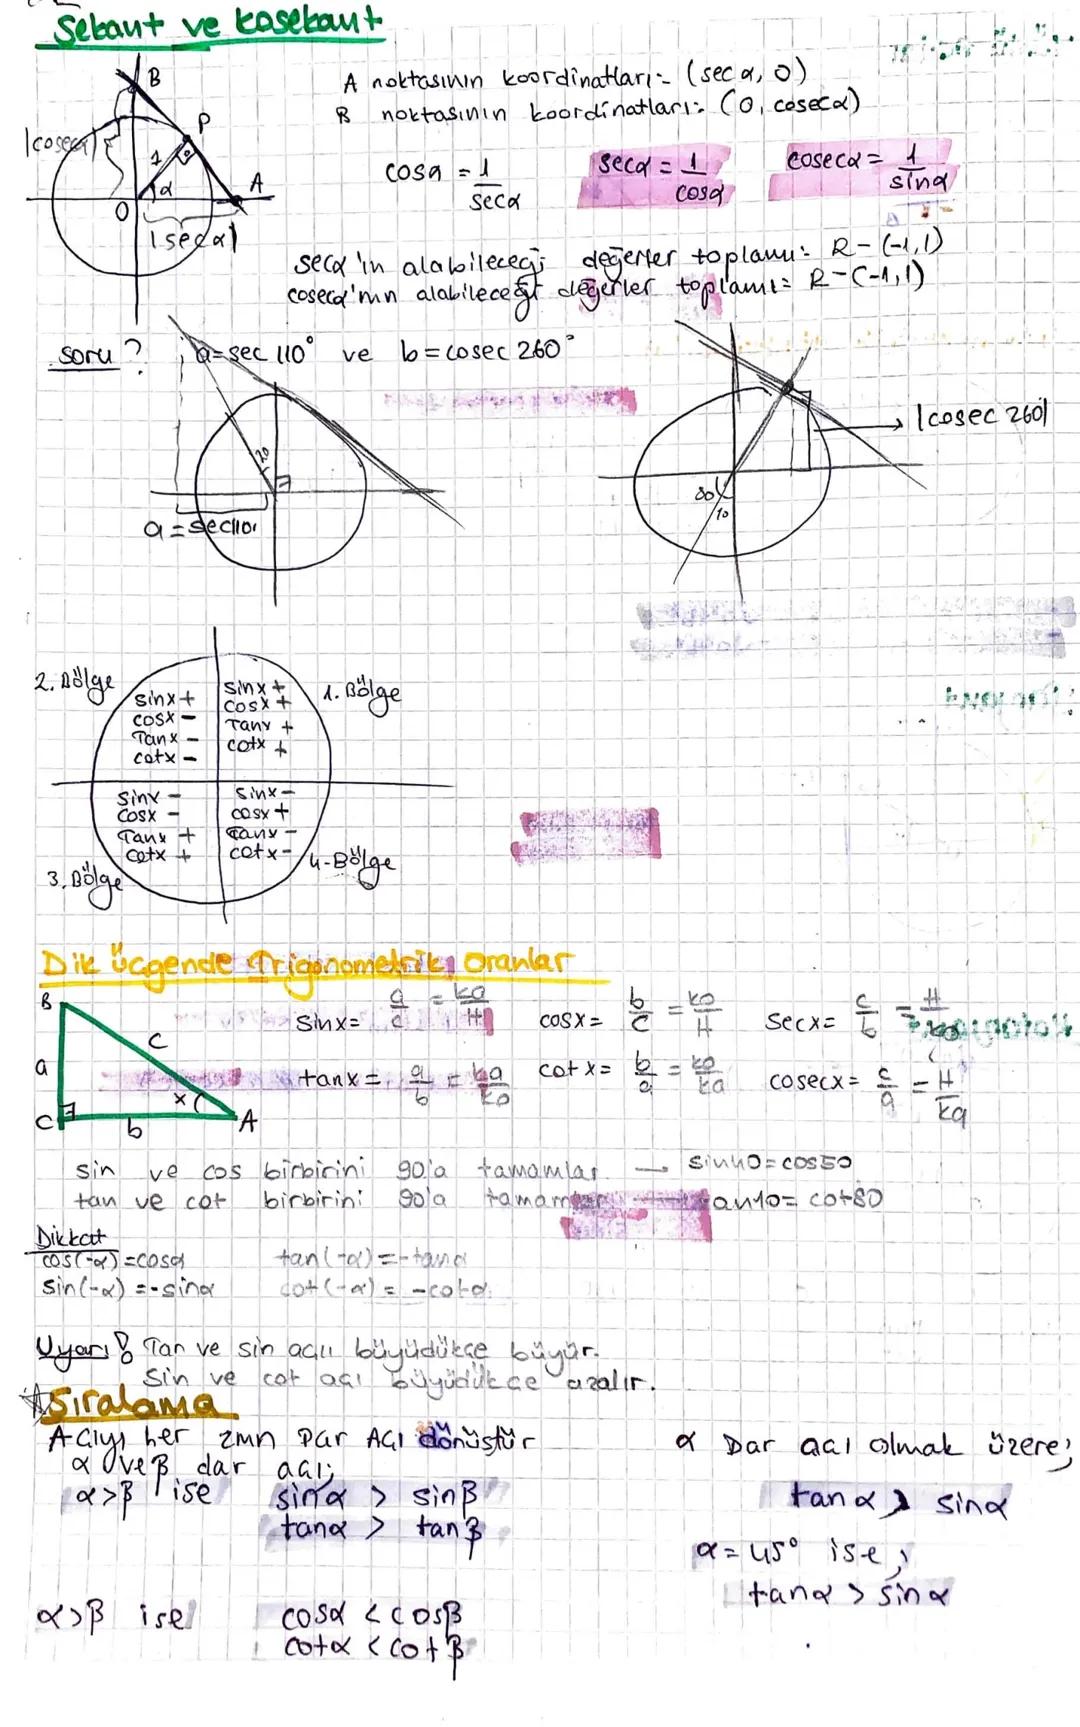 Sekant ve kosekant
A noktasının koordinatları: (sec α, 0)
B noktasının koordinatları: (0, cosecα)
B
P
|cosecα|
1
α
A
O
|secα|
cosα = 1/secα
secα = 1/cosα
cosecα = 1/sinα
secα'in alabileceği değerler toplamı: R-(-1,1)
cosecα'nın alabileceği değerler toplamı: R-(-1,1)
soru ? a=sec 110° ve b=cosec 260°
20
a=sec110
|cosec 260|
80
10
2. Bölge
sinx +
cosx -
Tanx -
cotx -
1. Bölge
sinx +
cosx +
Tanx +
cotx +
3. Bölge
sinx -
cosx -
Tanx +
cotx +
4. Bölge
sinx -
cosx +
Tanx -
cotx -
Dik üçgende Trigonometrik Oranlar
B
a
c
C
b
x
A
sinx= a/c = ka/H
cosx= b/c = ko/H
secx= c/b = H/ko
tanx= a/b = ka/ko
cotx= b/a = ko/ka
cosecx= c/a = H/ka
sin ve cos birbirini 90'a tamamlar → sin40=cos50
tan ve cot birbirini 90'a tamamlar → tan10=cot80
Dikkat
cos(-α)=cosα tan(-α)=-tanα
sin(-α)=-sinα cot(-α)=-cotα
Uyarı! Tan ve sin açı büyüdükçe büyür.
Sin ve cot açı büyüdükçe azalır.
Sıralama
Açıyı her zmn Dar Açı dönüştür
α ve β dar açı;
α>β ise sinα > sinβ
tanα > tanβ
α>β ise cosα < cosβ
cotα < cotβ
α Dar açı olmak üzere;
tanα > sinα
α=45° ise,
tanα > sinα